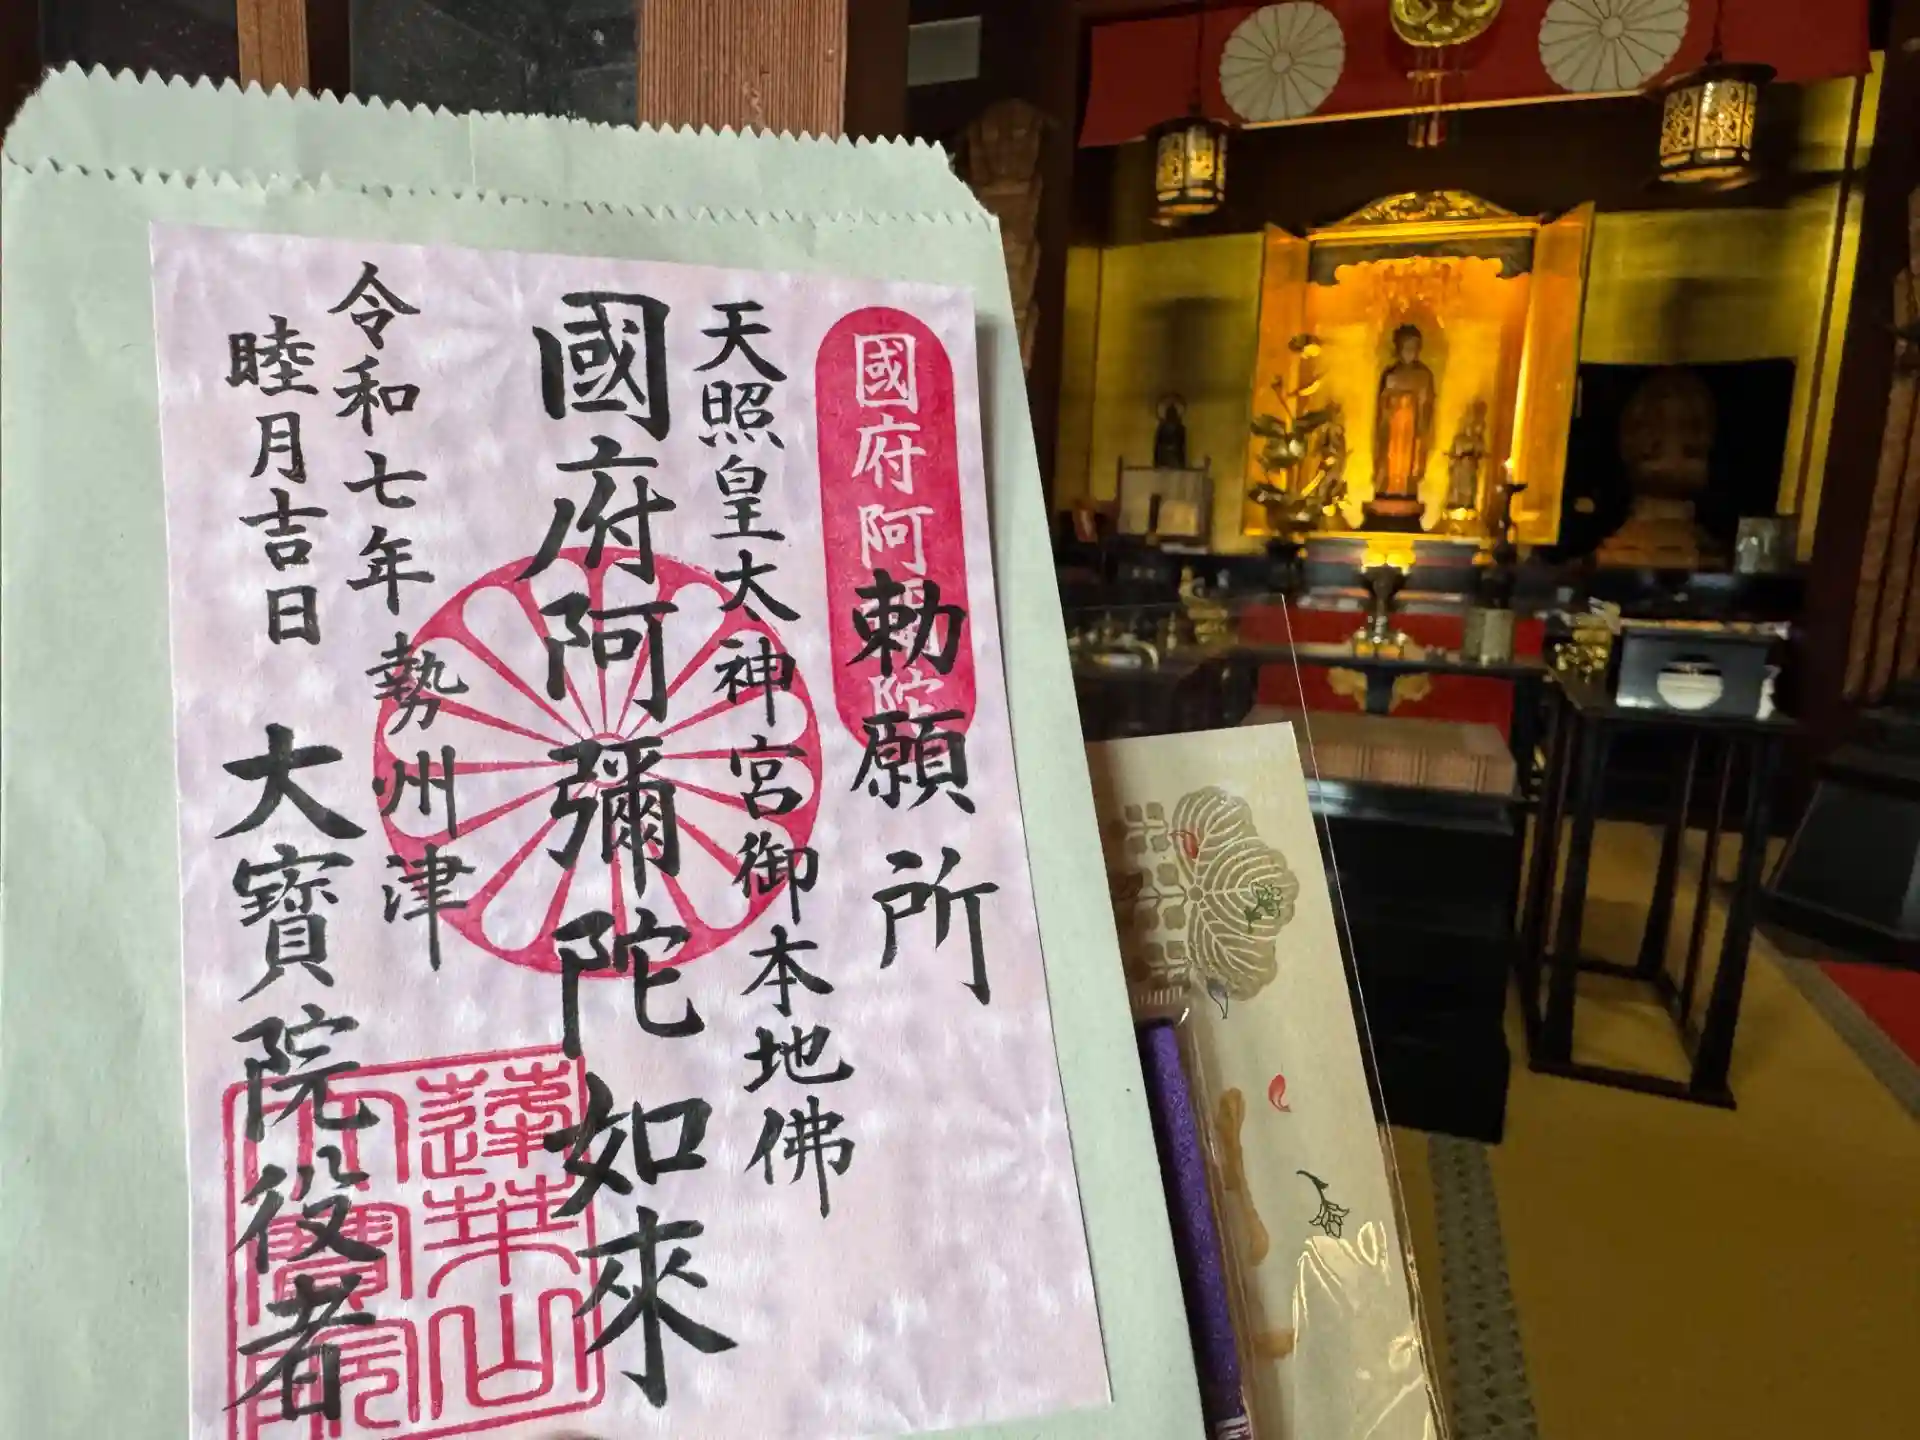 國府阿彌陀
勅願所
天照皇太神宮御本地佛
國府阿彌陀如來
令和七年
勢州津
睦月吉日
大寶院役者
蓮華山
大寶院